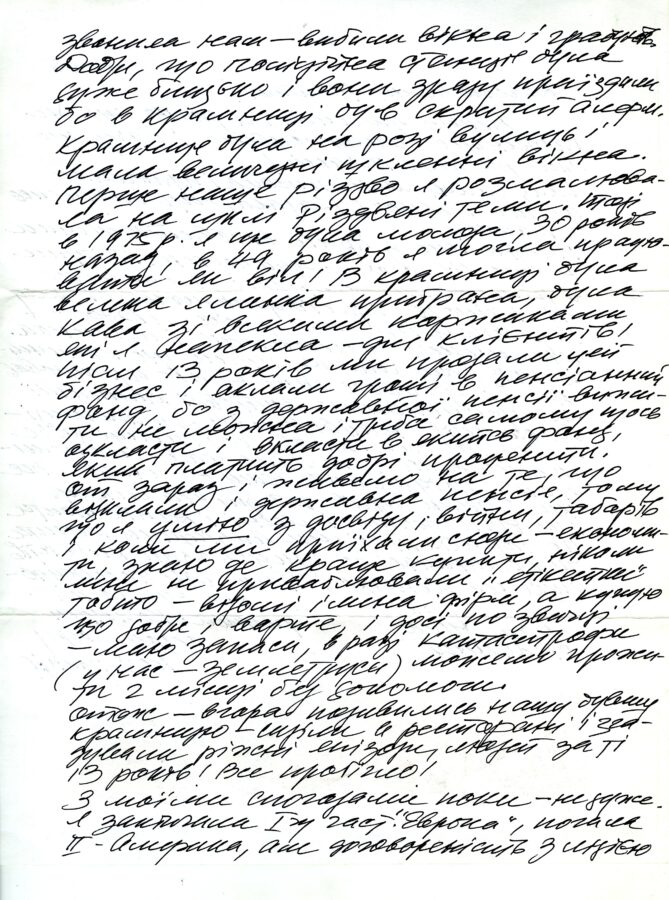 звонила нам – вибили вікна і грабують.
Добре, що поліційна станція була
дуже близько і вони зразу приїздили
бо в крамниці був скритий алярм.
Крамниця була на розі вулиць і
мала величезні шклянні вікна.
Перше наше різдво я розмалюва-
ла на шклі Різдвяні теми. Тоді
в 1975 р. я ще була молода, 30 років
назад, в 49 років я могла працю-
вати як віл! В крамниці була
велика ялинка прибрана, була
кава зі всякими коржиками
для клієнтів!
після 13 років ми продали цей
бізнес і вклали гроші в пенсійний
фонд бо з державної пенсії вижи-
ти не можна і треба самому щось
відкласти і вкласти в якийсь фонд,
який платить добрі проценти.
От зараз і живемо на те, що
відклали і державна пенсія, тому
що я умію з досвіду, війни, таборів
і коли ми приїхали сюди – економи-
ти, знаю де краще купити, ніколи
мене не приваблювали "етікетки"
тобто – відомі імена фірм, а купую
що добре і варте, і досі по звичці
– маю запаси, в разі катастрофи
(у нас – землетруси) можемо прожи-
ти 2 місяці без допомоги.
Отож – вчора подивились нашу бувшу
крамницю – сиділи в ресторані і зга-
дували ріжні епізоди, людей за ті
13 років! Все пробігло!
З моїми спогадами поки – не дуже.
Я закінчила І-у част. "Европа", почала
ІІ – Америка, але договореність з